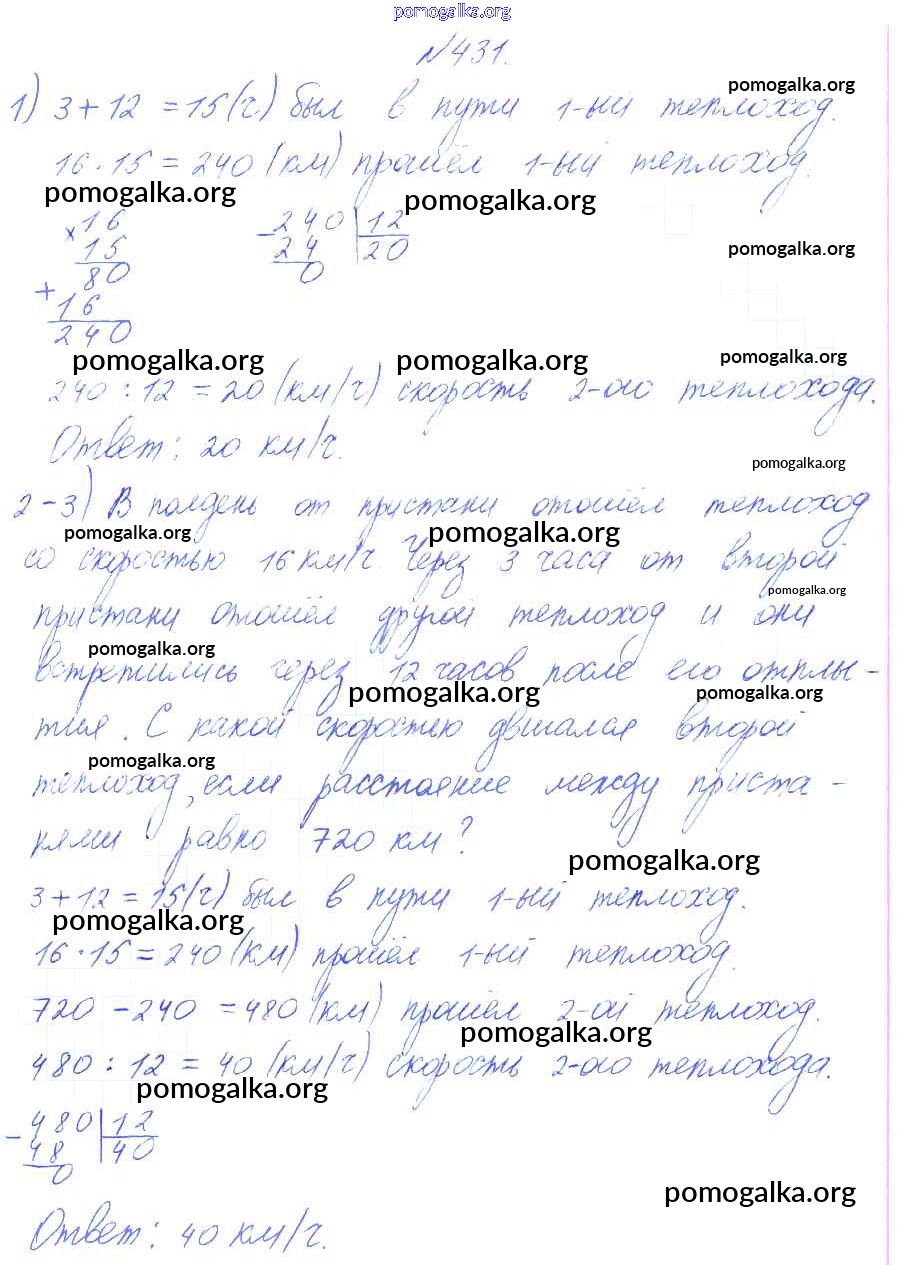 pomogalka.org
№431.
pomogalka.org
1) 3 + 12 = 15 (ч) был в пути 1-ый теплоход.
16 · 15 = 240 (км) прошёл 1-ый теплоход.
pomogalka.org pomogalka.org
× 16 - 240 | 12
15 24 20
pomogalka.org
80 0
+ 16
240
pomogalka.org pomogalka.org pomogalka.org
240 : 12 = 20 (км/ч) скорость 2-ого теплохода.
Ответ: 20 км/ч.
pomogalka.org
2-3) В полдень от пристани отошёл теплоход
pomogalka.org pomogalka.org
со скоростью 16 км/ч. Через 3 часа от второй
pomogalka.org
пристани отошёл другой теплоход и они
pomogalka.org
встретились через 12 часов после его отплы-
pomogalka.org pomogalka.org
тия. С какой скоростью двигался второй
pomogalka.org
теплоход, если расстояние между приста-
нями равно 720 км?
pomogalka.org
3 + 12 = 15 (ч) был в пути 1-ый теплоход.
pomogalka.org
16 · 15 = 240 (км) прошёл 1-ый теплоход.
720 - 240 = 480 (км) прошёл 2-ой теплоход.
pomogalka.org
480 : 12 = 40 (км/ч) скорость 2-ого теплохода.
pomogalka.org
- 480 | 12
48 40
0
pomogalka.org
Ответ: 40 км/ч.